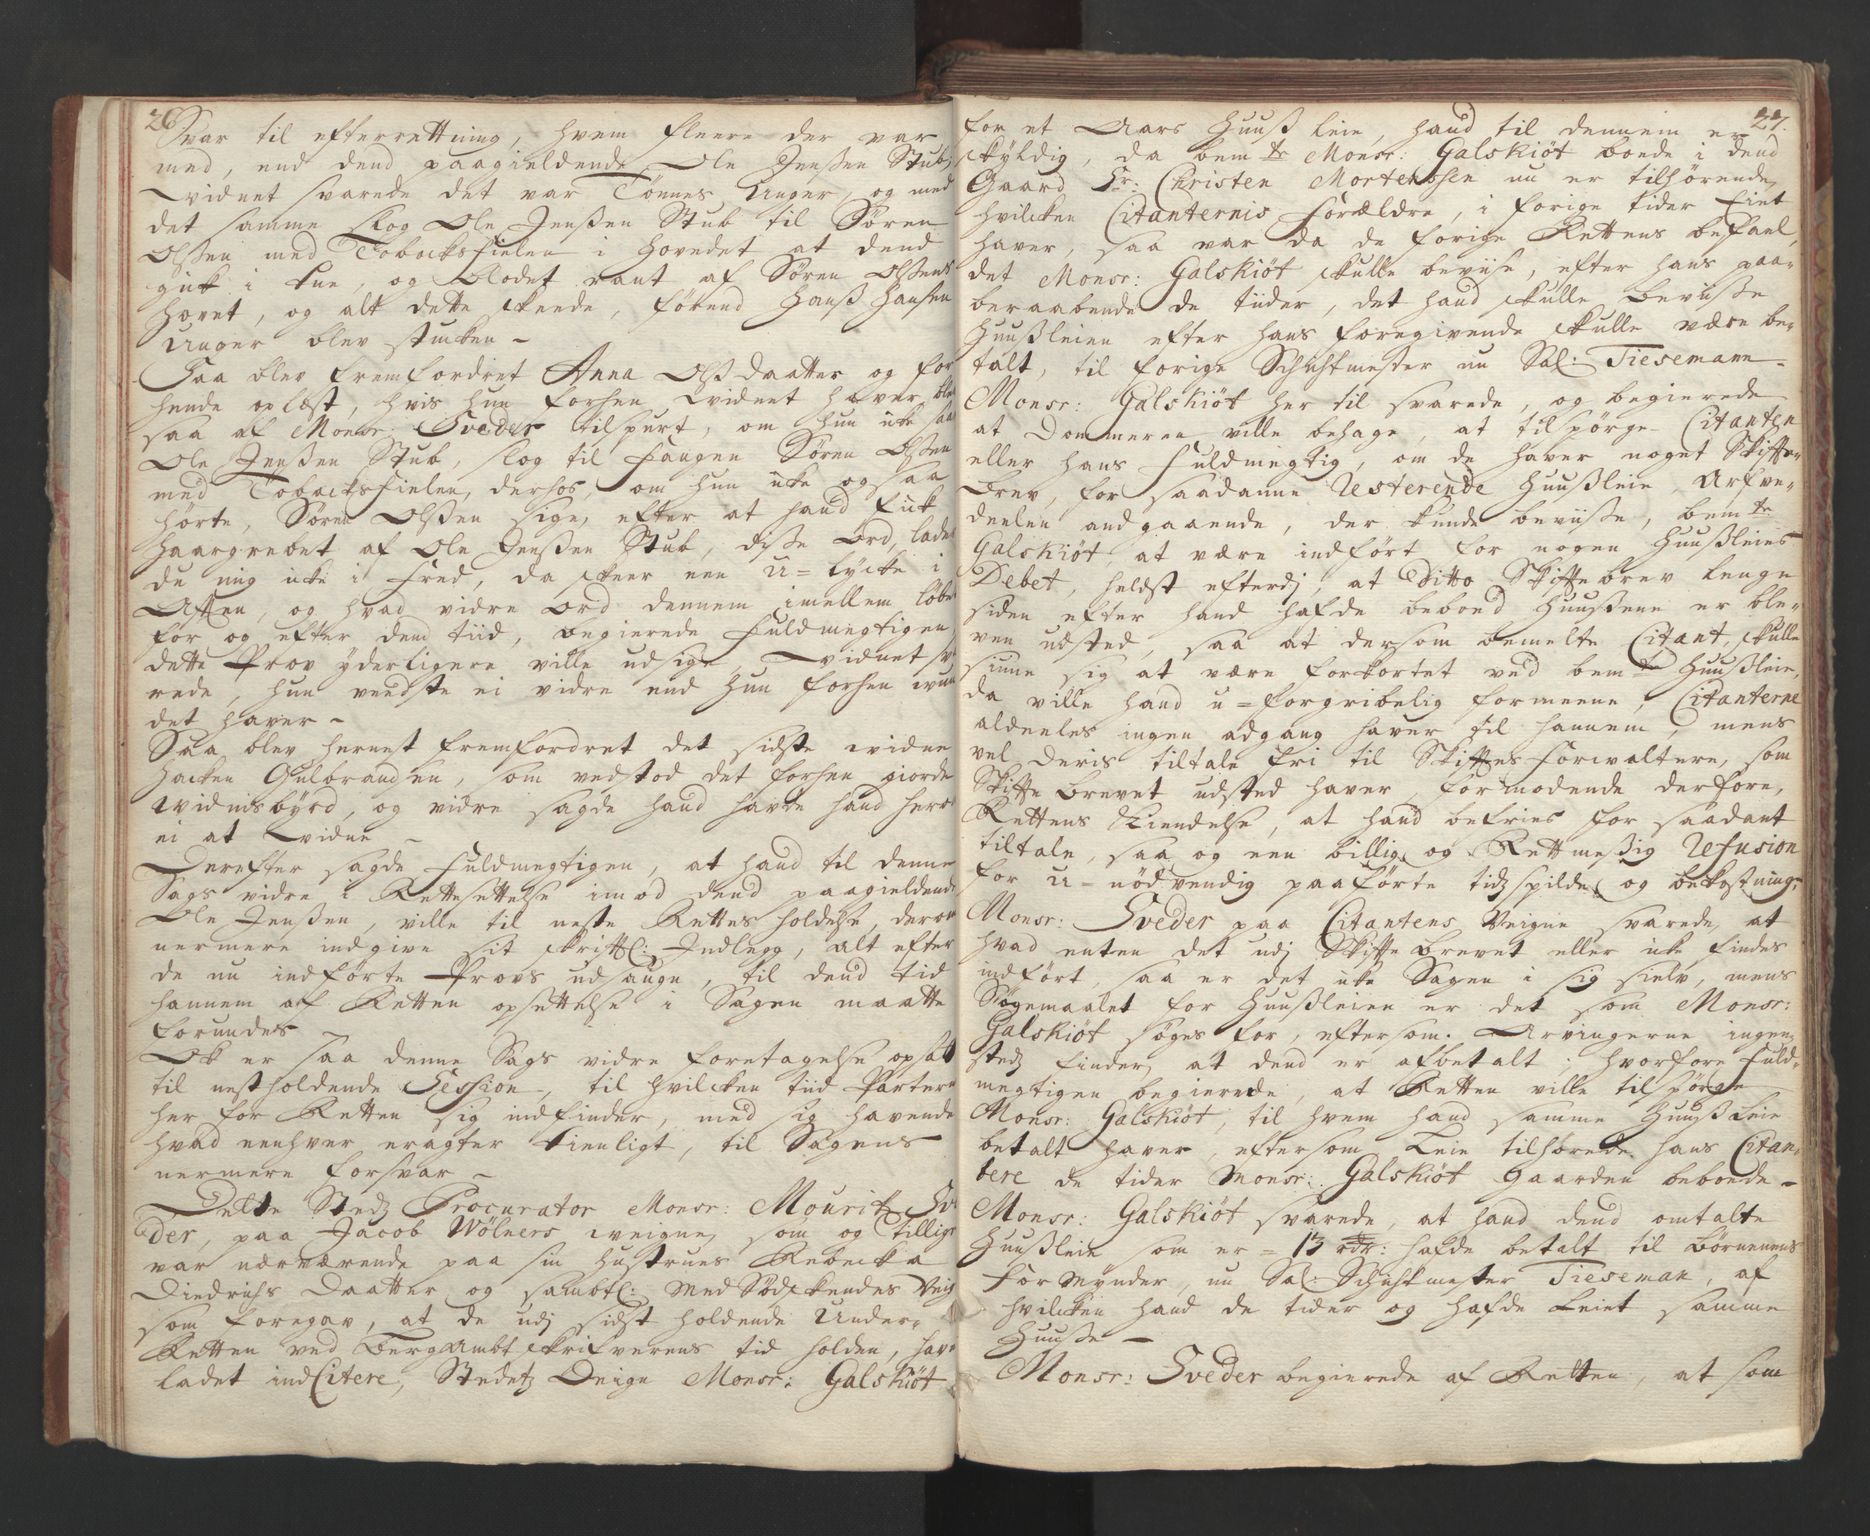 26
Svar til efterrettning, hvem fleere der var
med, end dend paagieldende Ole Jenßen Stub,
Widnet svarede det var Tönnes Unger, og med
det samme slog Ole Jenßen Stub til Sören
Olßen med Tobacksfielen i Hovedet at dend
gick i tue, og Blodet rant af Sören Olßens
Hovet, og alt dette skeede, förend Hanß Hansen
Unger blev stucken ~
Saa blev fremfordret Anna Olß daatter og for
hende oplæst, hvis hun forhen widnet haver, blev
saa af Monsr. Sveder tilspurt, om hun icke saa
Ole Jenßen Stub, slog til Fangen Sören Olßen
med Tobacksfielen, derhos, om hun icke ogsaa
hörte, Sören Olßen sige, efter at hand fick
haargrebet af Ole Jenßen Stub, disse Ord, lader
du mig icke i Fred, da skeer een U=lycke i
Aften, og hvad vidre ord dennem imellem löbe
for og efter dem tiid, begierede Fuldmegtigen
dette Prov yderligere ville udsige, Widnet sva
rede, hun veedste ei vidre end hun forhen wun
det haver ~
Saa blev hernest fremfordret det sidste widne
Hacken Gulbrandsen, som vedstod det forhen giorde
widnisbyrd, og vidre sagde hand havde hand herom
ei at Widne ~
Derefter sagde Fuldmegtigen, at hand til denne
Sags vidre i Rettesettelse imod dend paagieldende
Ole Jenßen, ville til neste Rettes holdelse, derom
nermere indgive sit skriftl: Indlegg, alt efter
de nu indförte Provs udsaugn, til dend tid
hannem af Retten opsettelse i Sagen maatte
forundes ~
Ok er saa denne Sags vidre foretagelse opsat
til nestholdende Session, til hvilcken tiid Partern
her for Retten sig indfinder, med sig havende
hvad eenhver eragter tienligt, til Sagens
nermere forsvar ~
Dette Stedz Procurator Monsr: Mouritz Sve
der, paa Jacob Wölners weigne, som og tillige
var nærværende paa sin Hustrues Rebecka
Diedrichs Daatter og sambtl: med Södskendes Veig
som foregav, at de udj sidst holdende Under-
Retten ved BergAmbtskrifverens tid holden, hav-
ladet indCitere, Stedetz Deign Monsr: Galskiöt
27.
for et Aars Huuß leie, hand til dennem er
skyldig, da bemte Monsr: Galskiöt boede i dend
Gaard Hr: Christen Mortensen nu er tilhörende,
hvilcken Citanternis Forældre, i forige tider Eiet
haver, saa var da de forige Rettens befael,
det Monsr: Galskiöt skulle bevise, efter hans paa-
beraabende de tiider, det hand skulle beviiße
Huußleien efter hans foregivende skulle være be-
talt, til forige Schichtmester nu Sal: Tiesemann ~
Monsr: Galskiöt her til svarede, og begierede
at Dommeren ville behage, at tilspörge Citanten
eller hans Fuldmegtig, om de haver noget Skifte-
brev, for saadanne Resterende Huußleie, Arfve-
deelen andgaaende, der kunde beviiße, bemte
Galskiöt, at være indfört for nogen Huußleies
Debet, helst efterdj, at ditto Skiftebrev lenge
siden efter hand hafde beboed Huußene er ble-
ven udsted, saa at dersom bemelte Citant, skulle
finne sig at være forkortet ved bemte Huußleie,
da ville hand u=forgribelig formeene, Citanterne
aldeeles ingen adgang haver til hannem, mens
vel deris tiltale fri til Skiftes Forvaltere, som
Skifte Brevet udsted haver, formodende derfore,
Rettens Kiendelse, at hand befries for saadant
tiltale, saa og een billig og Rettmeßig Refusion
for u=nödvendig paaförte tidzspilde og bekostning.
Monsr: Sveder paa Citantens Veigne svarede, at
hvad enten det udj Skifte Brevet eller icke findes
indfört, saa er det icke Sagen i sig sielv, mens
Sögemaalet for Huußleien er det som Monsr:
Galskiöt söges for, eftersom Arvingerne ingen
stedz finder, at dend er afbetalt; hvorfore Fuld-
megtigen begierede, at Retten ville tilspörge
Monsr: Galskiöt, til hvem hand samme Huuß Leie
betalt haver, eftersom Leie tilhörede hans Citan-
tere de tider Monsr: Galskiöt Gaarden beboede ~
Monsr: Galskiöt svarede, at hand dend omtalte
Huußleie som er = 13 rdr: hafde betalt til Börnenes
Formynder, nu Sal: Schichtmester Tieseman, af
hvilcken hand de tider og hafde Leiet samme
Huuße ~
Monsr: Sveder begierede af Retten, at som